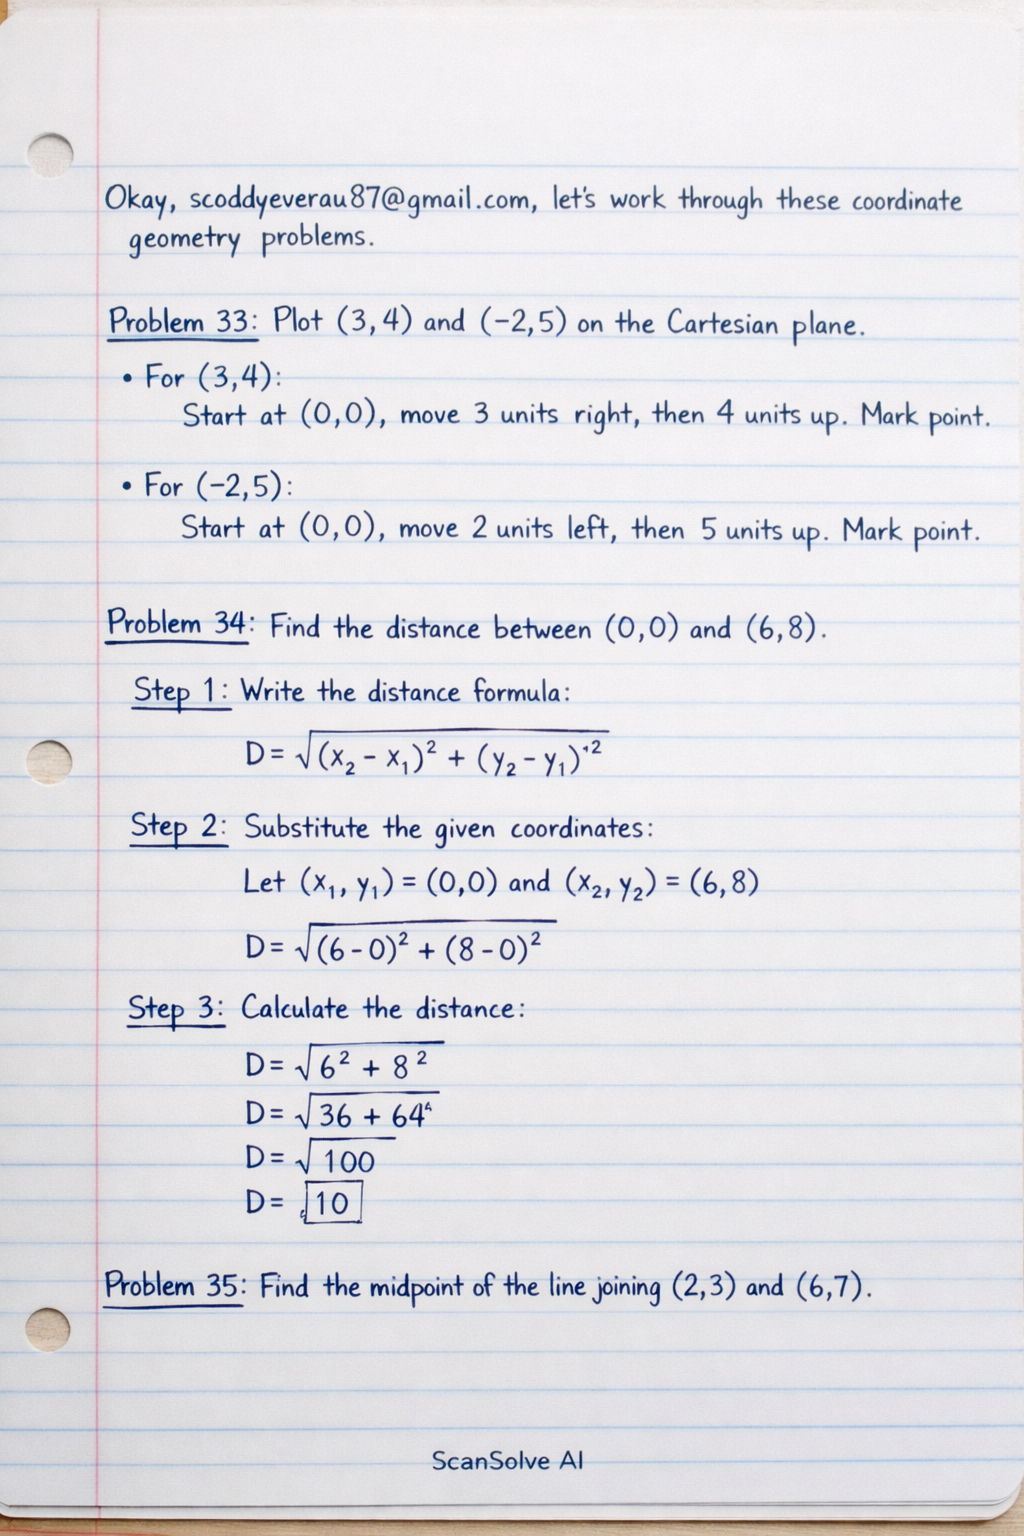 Okay, scoddyeverau87@gmail.com, let's work through these coordinate
geometry problems.
Problem 33: Plot (3,4) and (−2,5) on the Cartesian plane.
• For (3,4):
Start at (0,0), move 3 units right, then 4 units up. Mark point.
• For (−2,5):
Start at (0,0), move 2 units left, then 5 units up. Mark point.
Problem 34: Find the distance between (0,0) and (6,8).
Step 1: Write the distance formula:
D = √(x₂ − x₁)² + (y₂ − y₁)²
Step 2: Substitute the given coordinates:
Let (x₁, y₁) = (0,0) and (x₂, y₂) = (6,8)
D = √(6 − 0)² + (8 − 0)²
Step 3: Calculate the distance:
D = √6² + 8²
D = √36 + 64
D = √100
D = 10
Problem 35: Find the midpoint of the line joining (2,3) and (6,7).
ScanSolve AI